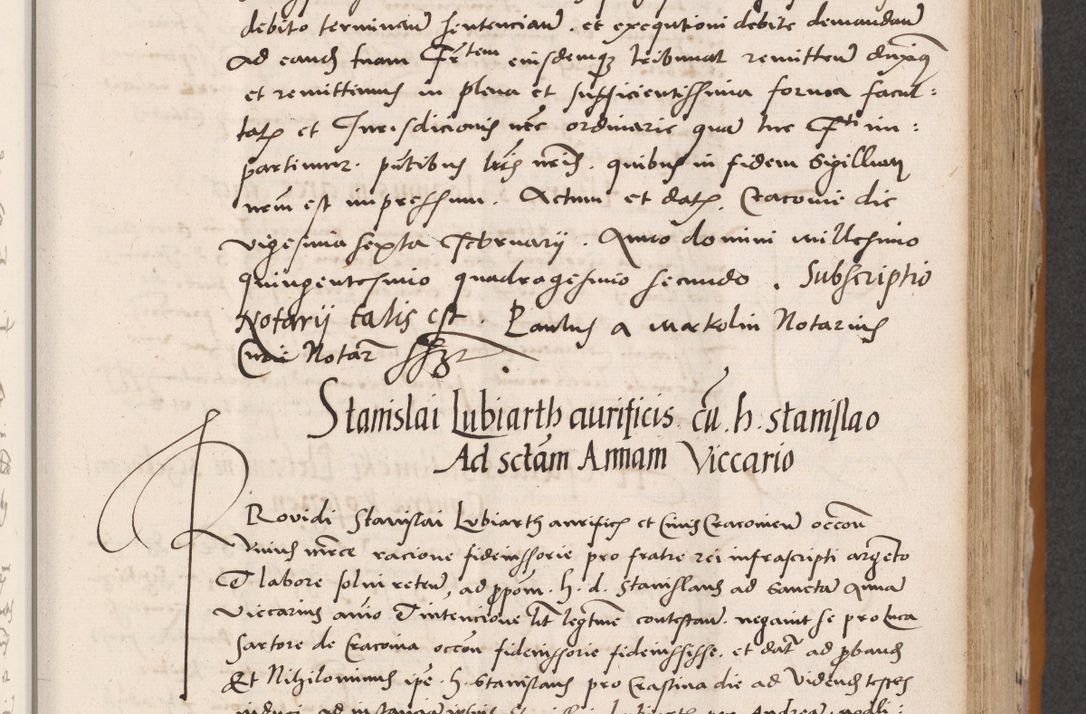 debito terminand sentenciand . et exequtioni debite demandand
Ad eand tuam Frtem eiusdemq tribunal remittend duximq
et remittimus in plena et sufficientissima forma facul :
tatp et Jurisdicionis nre ordinarie qua tue Fti im :
partimur . pntibus lris nris . quibus in fidem Sigillum
nrm est impressum . Actum et datp Cracovie die
vigesima sexta Februarij . Anno domini millesimo
quingentesimo quadragesimo secundo . Subscriptio
Notarij talis est . Paulus a Makolin Notarius
Curie Notar sssst
Stanislai Lubiarth aurificis cu . h . stanislao
Ad sctam Annam Viccario
PRovidi Stanislai Lubiarth aurificis et Civis Cracovien occon
Unius mrce racione fideiussorie pro fratre rei infrascripti argento
et labore solui reten , ad ppom . h . d . Stanislaus ad Sancta Anna
Viccarius aio et intencione lit legtme contestan . negavit se pro luca
Sartore de Cracovia occon fideiussorie fideiussisse . et dat ad pband
Et Nihilominus ipe . h . Stanislaus pro Crastina die ad Vidend testes
induci ad instancia